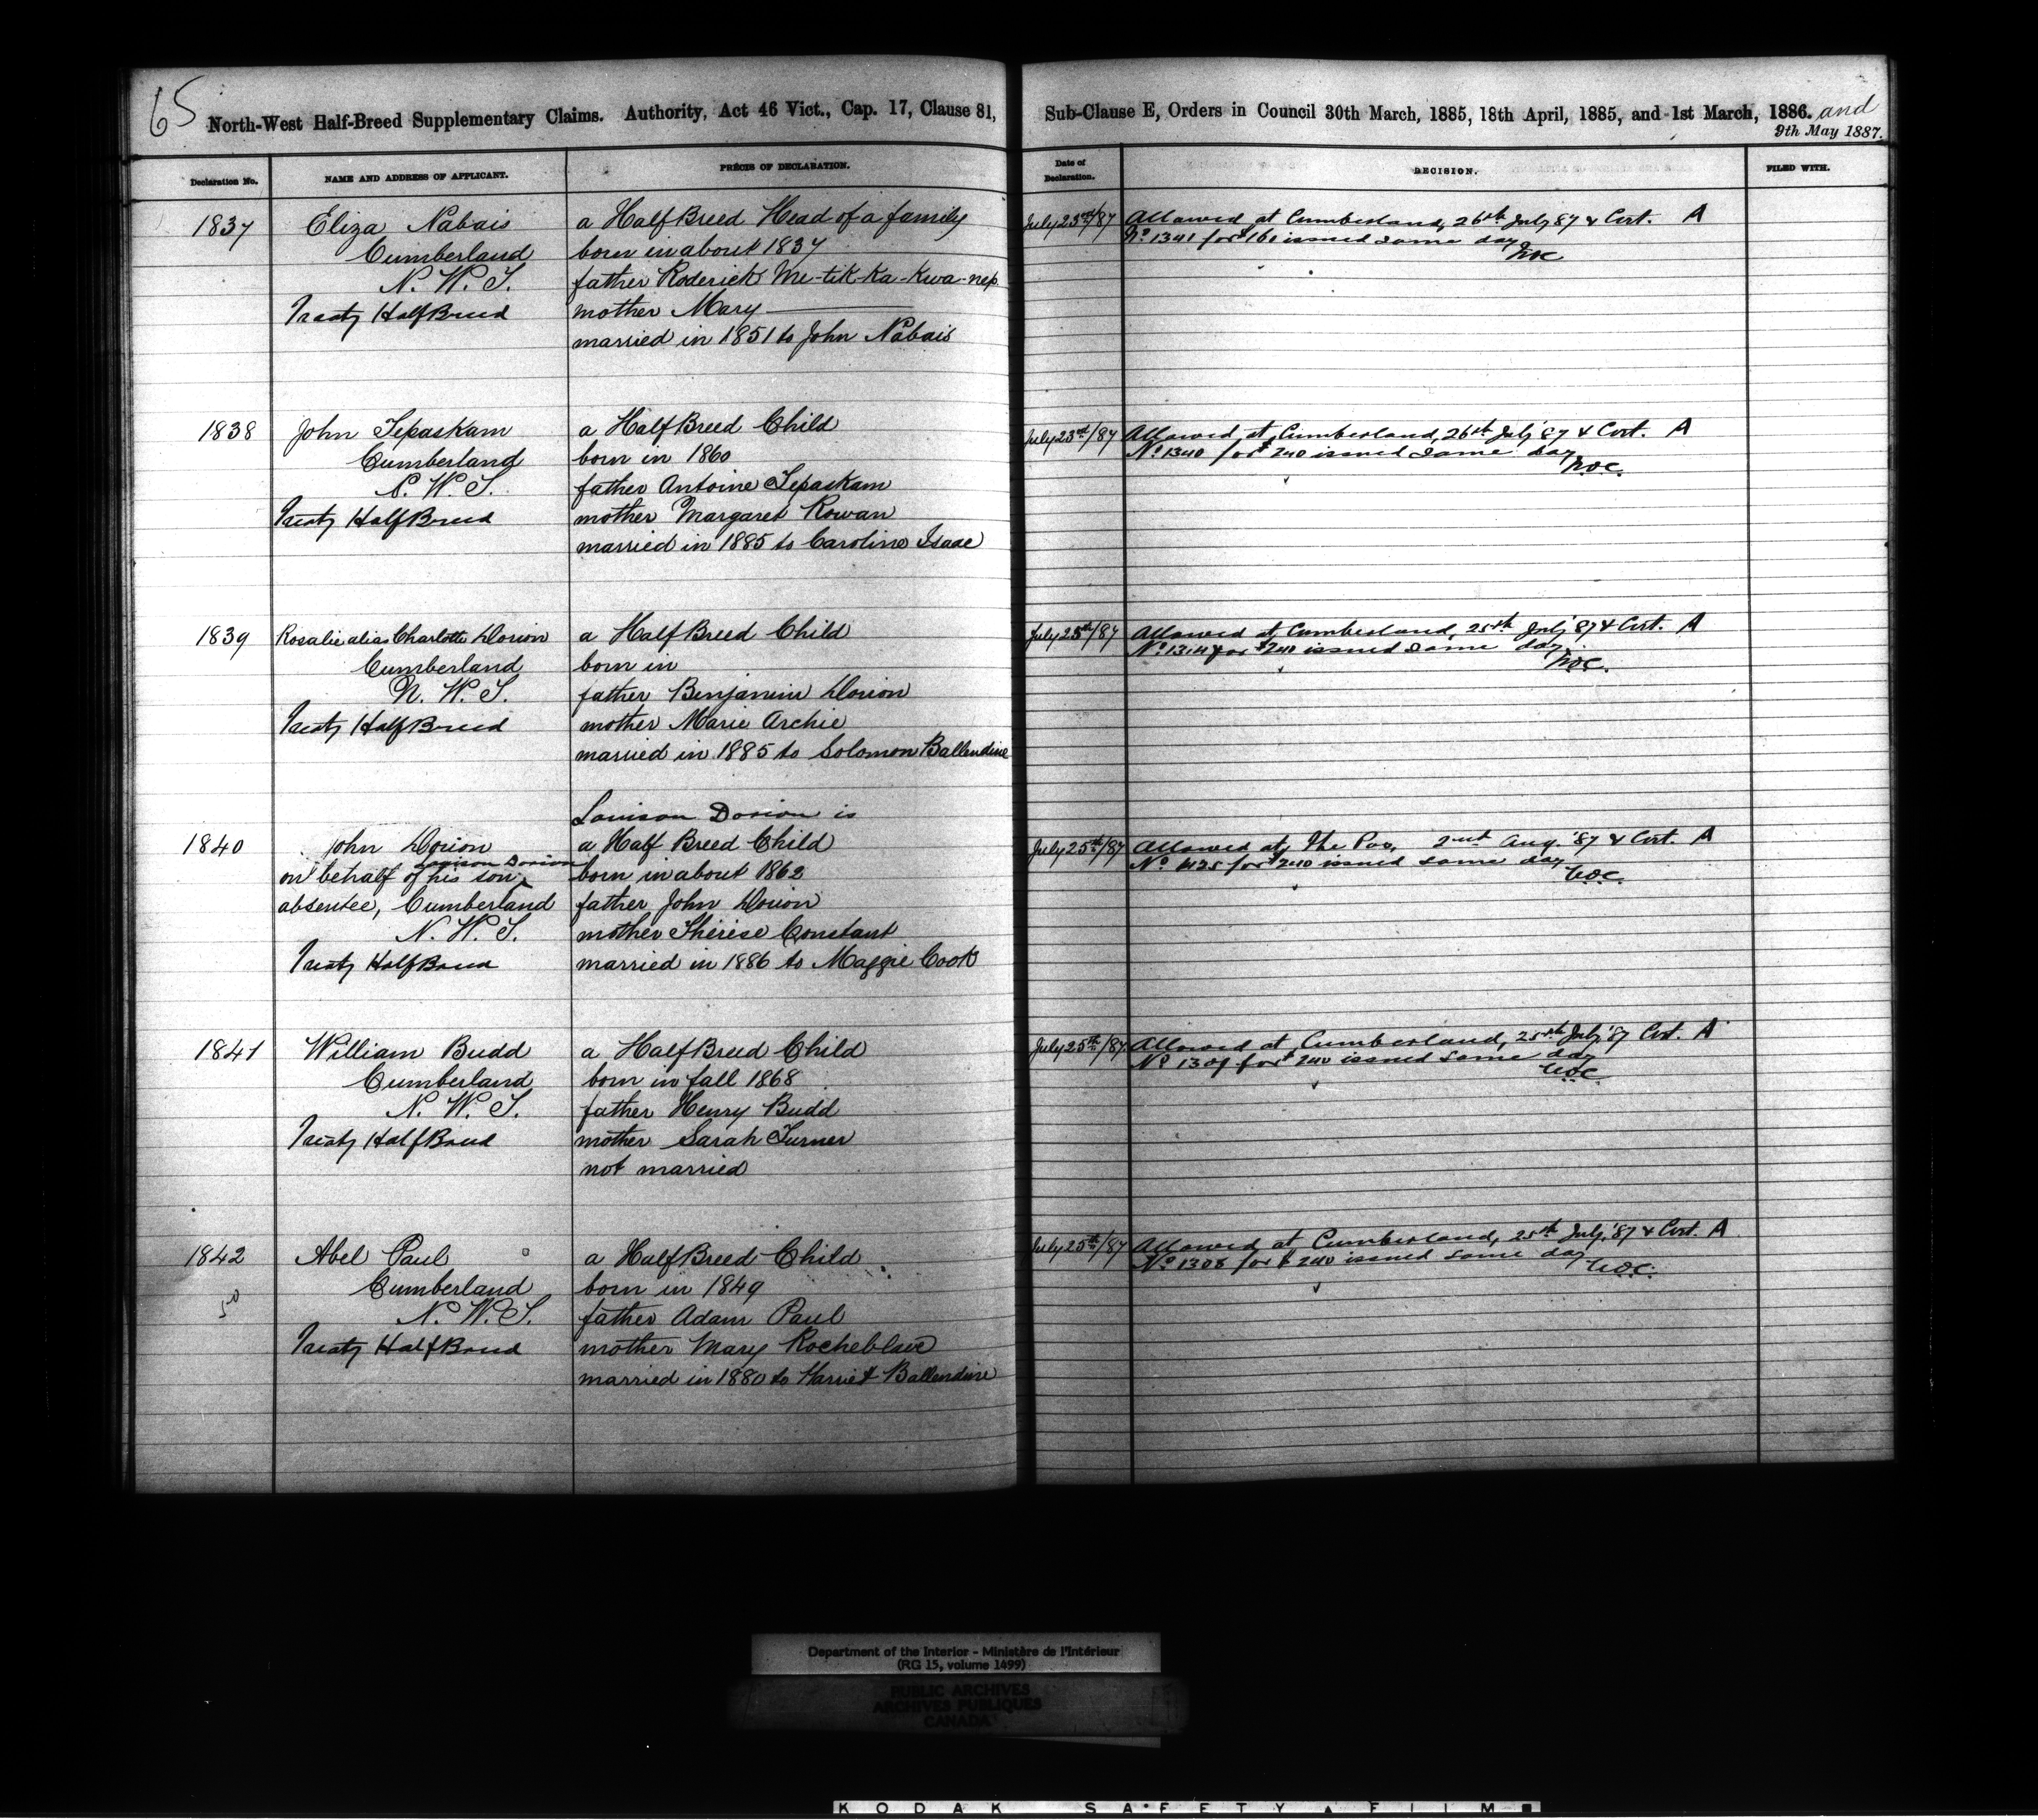 65
North-West Half-Breed Supplementary Claims. Authority, Act 46 Vict., Cap. 17, Clause 81, Sub-Clause E, Orders in Council 30th March, 1885, 18th April, 1885, and 1st March, 1886. and
9th May 1887.
Declaration No.
NAME AND ADDRESS OF APPLICANT.
PRÉCIS OF DECLARATION.
Date of Declaration.
DECISION.
FILED WITH.
1837
Eliza Nabais
Cumberland
N. W. T.
Treaty HalfBreed
a HalfBreed Head of a family
born in about 1837
father Roderick Me-tik-ka-kwa-nep
mother Mary
married in 1851 to John Nabais
July 23rd/87
Allowed at Cumberland, 26th July 87 & Cert. A
No. 1341 for $161 issued same day
1838
John Tepaskam
Cumberland
N. W. T.
Treaty HalfBreed
a HalfBreed Child
born in 1860
father Antoine Tepaskam
mother Margaret Rowan
married in 1885 to Caroline Isaac
July 23rd/87
Allowed at Cumberland, 26th July '87 & Cert. A
No. 1340 for $240 issued same day
1839
Rosalie alias Charlotte Dorion
Cumberland
N. W. T.
Treaty HalfBreed
a HalfBreed Child
born in
father Benjamin Dorion
mother Marie Archie
married in 1885 to Solomon Ballendine
July 25th/87
Allowed at Cumberland, 25th July '87 & Cert. A
for $240 issued same day
1840
John Dorion
Louison Dorion
on behalf of his son
absentee, Cumberland
N. W. T.
Treaty HalfBreed
Louison Dorion is
a Half Breed Child
born in about 1862
father John Dorion
mother Thérèse Constant
married in 1886 to Maggie Cook
July 25th/87
Allowed at The Pas, 2nd Aug. '87 & Cert. A
No. 1425 for $240 issued same day
1841
William Budd
Cumberland
N. W. T.
Treaty HalfBreed
a HalfBreed Child
born in fall 1868
father Henry Budd
mother Sarah Turner
not married
July 25th/87
Allowed at Cumberland, 25th July '87 Cert. A
No. 1309 for $240 issued same day
1842
50
Abel Paul
Cumberland
N. W. T.
Treaty HalfBreed
a HalfBreed Child
born in 1849
father Adam Paul
mother Mary Rocheblave
married in 1880 to Harriet Ballendine
July 25th/87
Allowed at Cumberland, 25th July, '87 & Cert. A
No. 1308 for $240 issued same day
Department of the Interior - Ministère de l'Intérieur
(RG 15, volume 1499)
PUBLIC ARCHIVES
ARCHIVES PUBLIQUES
CANADA
KODAK SAFETY FILM